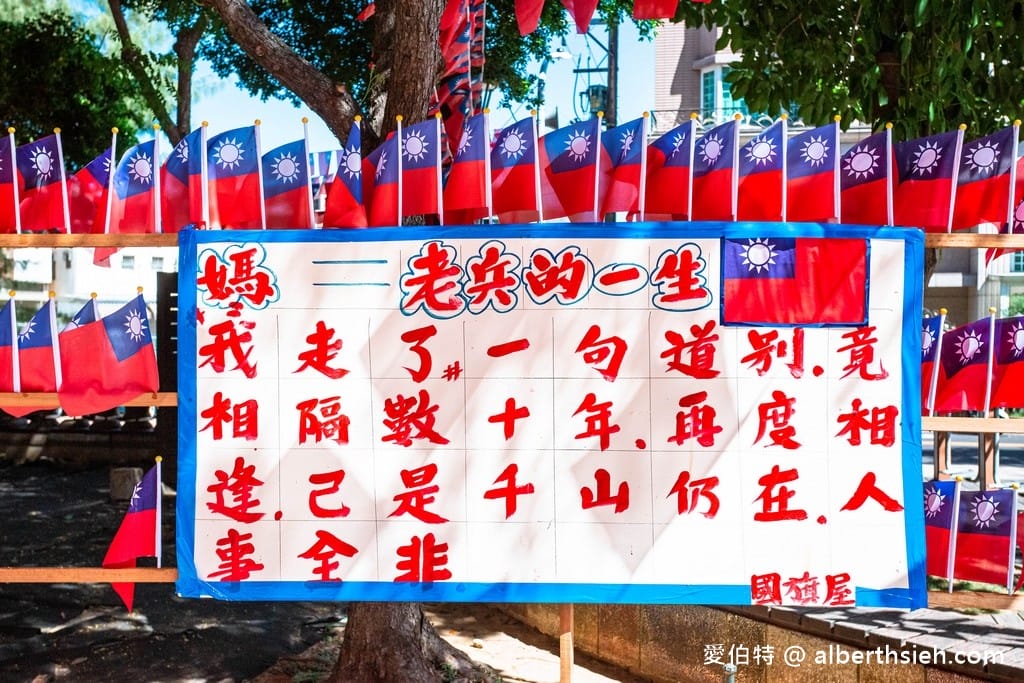 媽 = 老兵的一生
我走了#一句道別.竟
相隔數十年、再度相
逢.己是千山仍在.人
事全非
國旗屋
愛伯特 @ alberthsieh.com